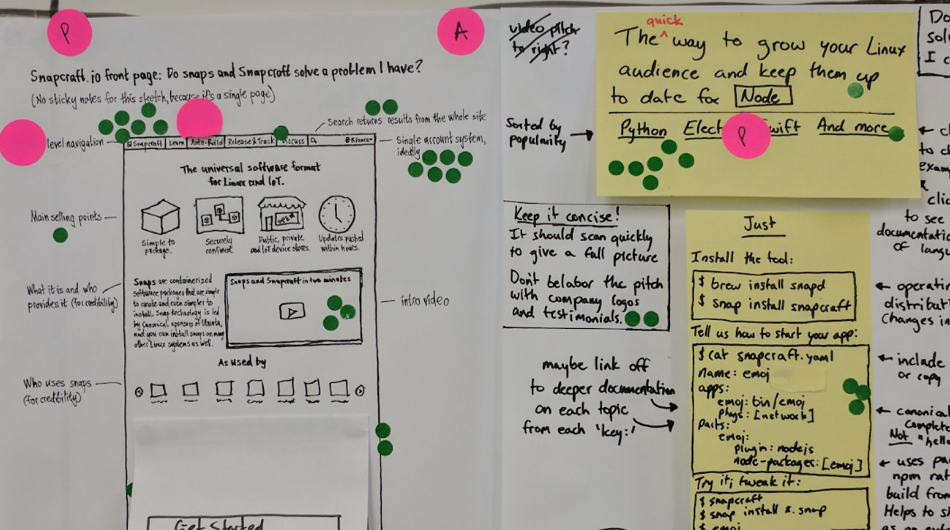 P
A
Snapcraft.io front page: Do snaps and Snapcraft solve a problem I have?
(No sticky notes for this sketch, because it's a single page)
Search returns results from the whole site
level navigation
Snapcraft Learn Auto-Build Release & Track Discuss
Single account system,
ideally
The universal software format
for Linux and IoT.
Main selling points
Simple to
package.
Securely
confined.
Public, private
and IoT device stores.
Updates pushed
within hours.
What it is and who
provides it (for credibility)
Snaps are containerised
software packages that are simple
to create and even simpler to
install. Snap technology is led
by Canonical, sponsors of Ubuntu,
and you can install snaps on many
other Linux systems as well.
Snaps and Snapcraft in two minutes
intro video
As used by
Who uses snaps
(for credibility)
Get Started
video pitch
to right?
quick
The way to grow your Linux
audience and keep them up
to date for Node
Sorted by
popularity
Python Elect Swift And more
P
Keep it concise!
It should scan quickly
to give a full picture
Don't belabor the pitch
with company logos
and testimonials.
maybe link off
to deeper documentation
on each topic
from each 'key:'
Just
Install the tool:
$ brew install snapd
$ snap install snapcraft
Tell us how to start your app:
$ cat snapcraft.yaml
name: emoj
apps:
emoj: bin/emoj
plugs: [network]
parts:
emoj:
plugin: nodejs
node-packages: [emoj]
Try it, tweak it:
$ snapcraft
$ snap install *.snap
$ emoj
Do
solv
I c
to c
exam
clic
to see
documentatio
of langu
operatin
distribut
Changes in
include
or copy
canonica
complete
Not "hell
uses pa
npm rat
build fro
Helps to s
as an ext